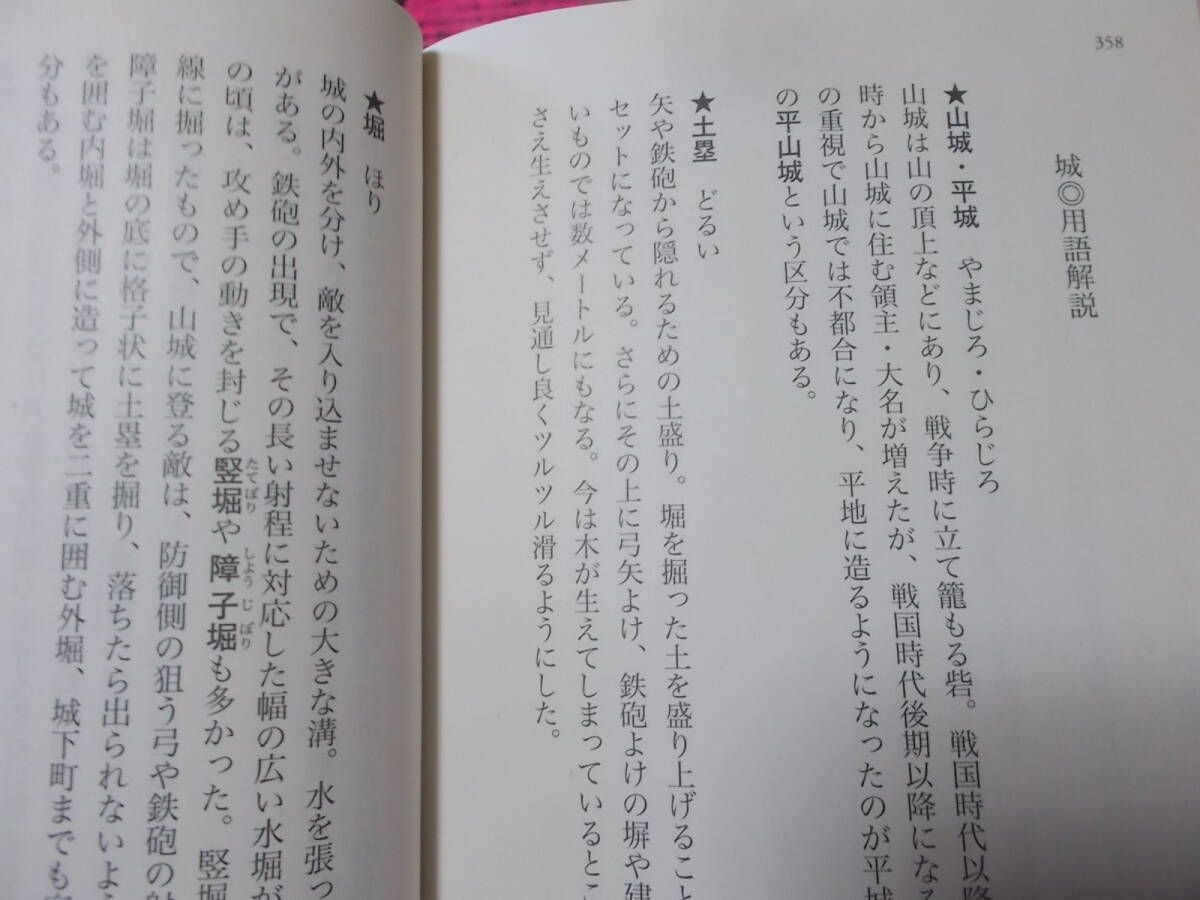 358
城◎用語解説
★山城・平城　やまじろ・ひらじろ
山城は山の頂上などにあり、戦争時に立て籠もる砦。戦国時代以降
時から山城に住む領主・大名が増えたが、戦国時代後期以降になる
の重視で山城では不都合になり、平地に造るようになったのが平城
の平山城という区分もある。
★土塁　どるい
矢や鉄砲から隠れるための土盛り。堀を掘った土を盛り上げること
セットになっている。さらにその上に弓矢よけ、鉄砲よけの塀や建
いものでは数メートルにもなる。今は木が生えてしまっているとこ
さえ生えさせず、見通し良くツルツル滑るようにした。
★堀　ほり
城の内外を分け、敵を入り込ませないための大きな溝。水を張っ
がある。鉄砲の出現で、その長い射程に対応した幅の広い水堀が
の頃は、攻め手の動きを封じる竪堀たてぼりや障子堀しょうじぼりも多かった。竪堀
線に掘ったもので、山城に登る敵は、防御側の狙う弓や鉄砲の射
障子堀は堀の底に格子状に土塁を掘り、落ちたら出られないよう
を囲む内堀と外側に造って城を二重に囲む外堀、城下町までも
分もある。